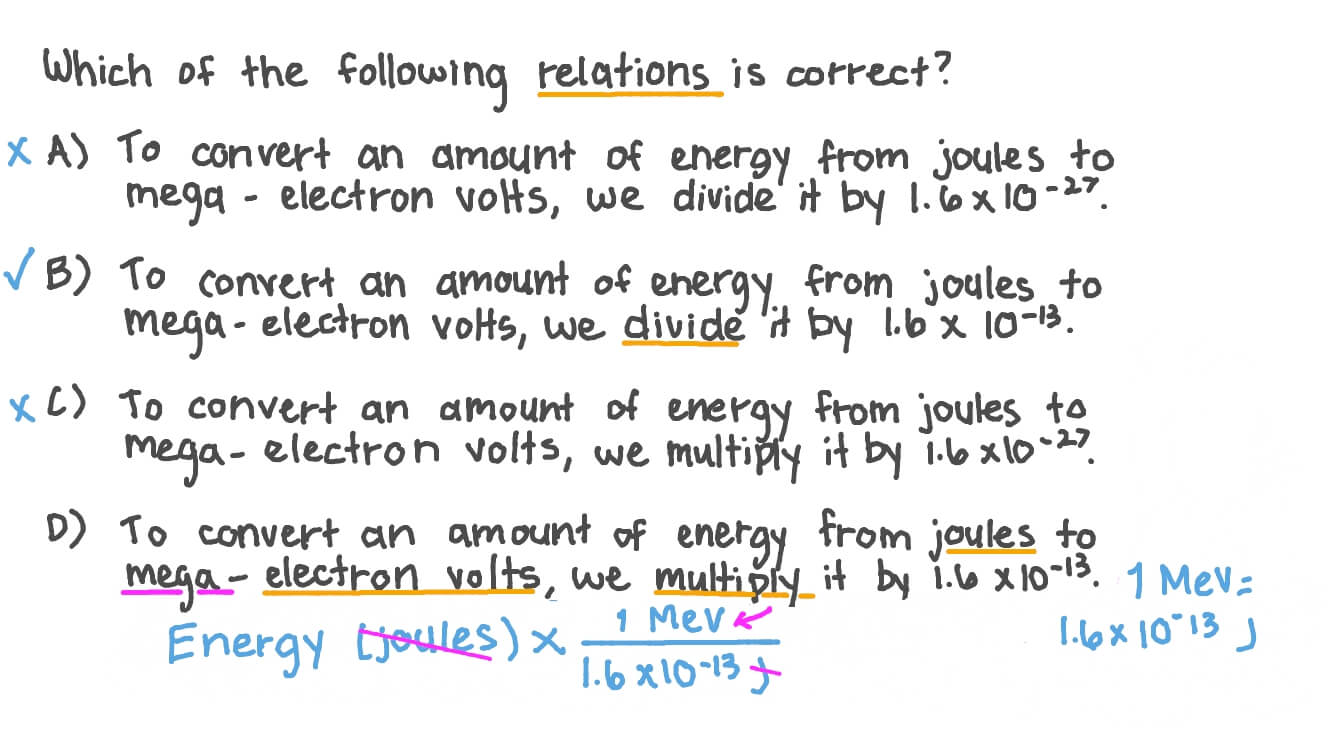 Which of the following relations is correct?
x A) To convert an amount of energy from joules to
mega - electron volts, we divide it by 1.6 x 10⁻²⁷.
✓ B) To convert an amount of energy from joules to
mega - electron volts, we divide it by 1.6 x 10⁻¹³.
x C) To convert an amount of energy from joules to
mega - electron volts, we multiply it by 1.6 x 10⁻²⁷.
D) To convert an amount of energy from joules to
mega - electron volts, we multiply it by 1.6 x 10⁻¹³.
1 MeV =
1.6 x 10⁻¹³ J
Energy (joules) x 1 MeV
1.6 x 10⁻¹³ J